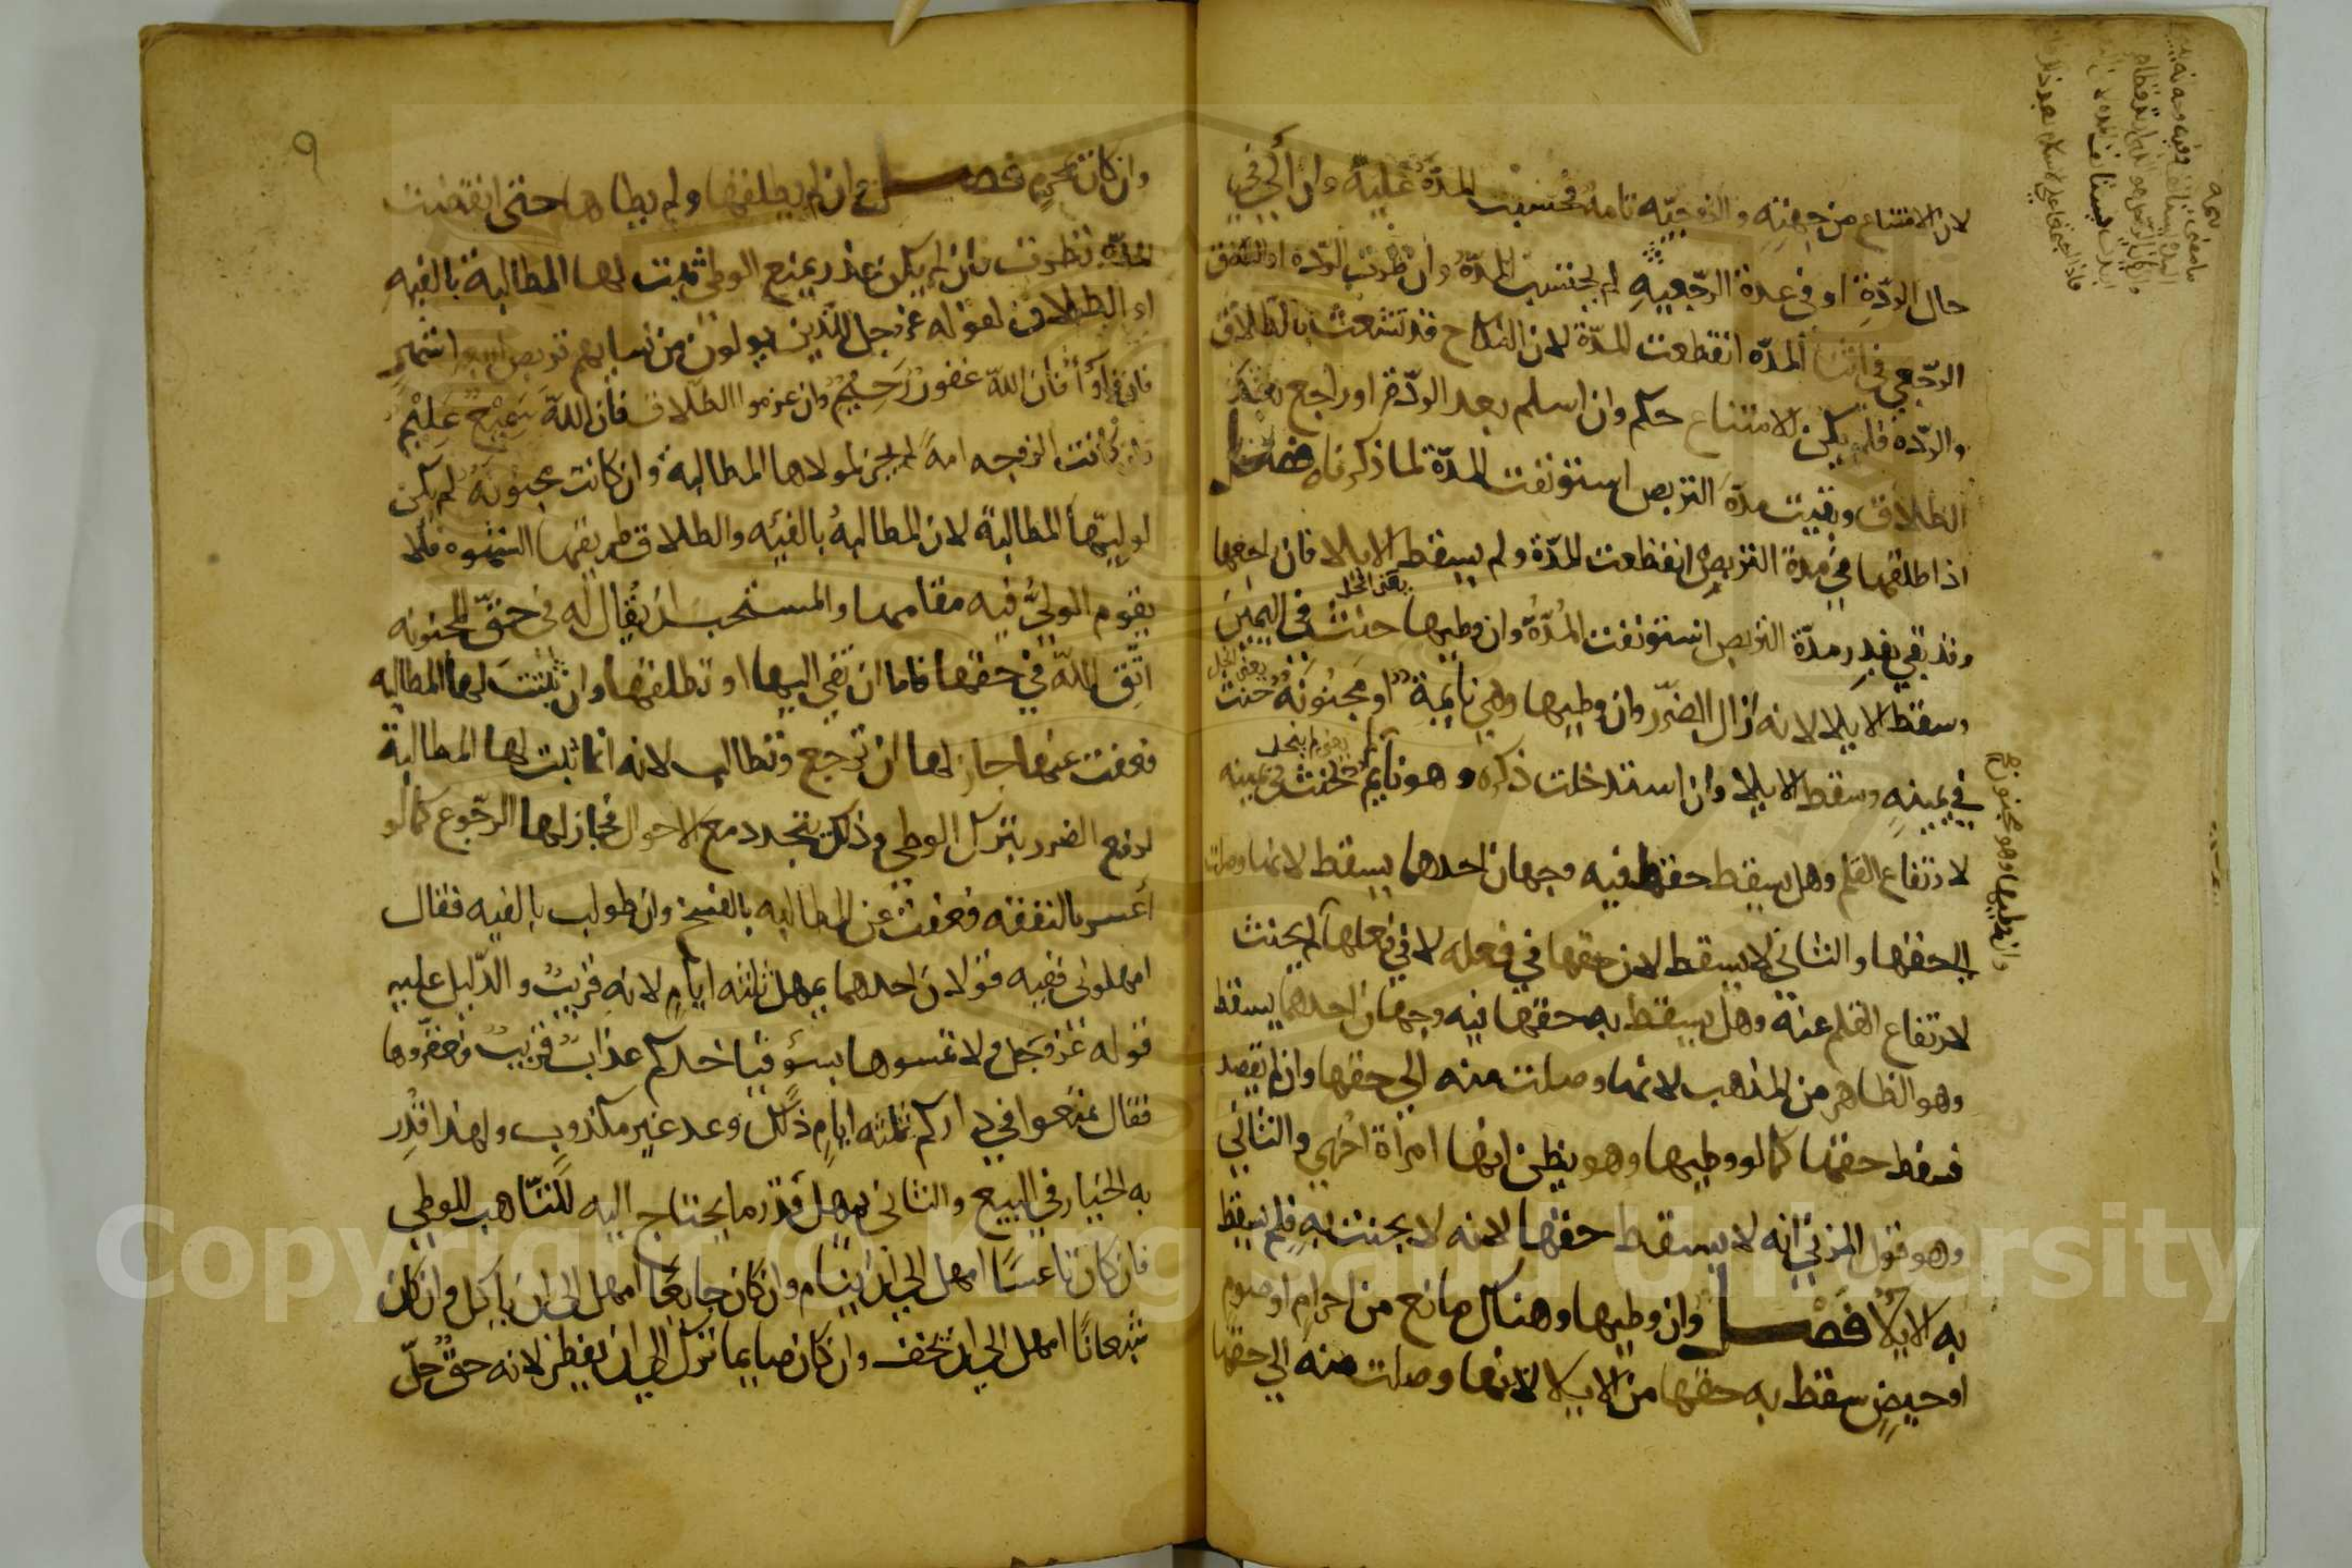 لان الامتناع من جهته والزوجيّه تامه فحسبت المدّة عليه وان الي في
حال الردّة او في عدة الرجعيه لم يحتسب المدّة وان طرت الردّة او الطلاق
الرجعي في اثنا المدّه انقطعت المدّة لان النكاح قد تشعث بالطلاق
والردّه فلم يكن للامتناع حكم وان اسلم بعد الردّة او راجع بعد
الطلاق وبقيت مدّة التربص استونفت المدّة لما ذكرناه فصل
اذا طلقها في مدة التربص انقطعت المدّة ولم يسقط الايلا فان راجعها
وقد بقي بقدر مدّة التربص استونفت المدّة وان وطيها حنث في اليمين
وسقط الايلا لانه ازال الضرر وان وطيها وهي نايمة او مجنونة حنث
في يمينه وسقط الايلا وان استدخلت ذكره وهو نايم لم يحنث في يمينه
لارتفاع القلم وهل يسقط حقها فيه وجهان احدهما يسقط لانها وصلت
الى حقها والثاني لا يسقط لان حقها في فعله لا في فعلها لم يحنث
لارتفاع القلم عنه وهل يسقط به حقها فيه وجهان احدهما يسقط
وهو الظاهر من المذهب لانها وصلت منه الي حقها وان لم يقصد
فسقط حقها كما لو وطيها وهو يظن انها امراة اخرى والثاني
وهو قول المزني انه لا يسقط حقها لانه لا يحنث به فلم يسقط
به الايلا فصل وان وطيها وهناك مانع من احرام او صوم
او حيض سقط به حقها من الايلا لانها وصلت منه الي حقها
وان وطيها وهو مجنون صح
٩
وان كان بمحرم فصل وان لم يطلقها ولم يطاها حتى انقضت
المدّة نظرت فان لم يكن عذر يمنع الوطئ ثبت لها المطالبة بالفيه
او الطلاق لقوله عز وجل للذين يولون من نسايهم تربص اربعة اشهر
فان فاؤا فان الله غفور رحيم وان عزموا الطلاق فان الله سميع عليم
وان كانت الزوجه امة لم يجز لمولاها المطالبه وان كانت مجنونة لم يكن
لوليّها المطالبة لان المطالبة بالفيئه والطلاق طريقها الشهوه فلا
يقوم الوليّ فيه مقامها والمستحب ان يقال له في حقّ المجنونه
اتّق اللّه في حقها فاما ان تفي اليها او تطلقها وان ثبتت لها المطالبه
فعفت عنها جاز لها ان ترجع وتطالب لانه انما ثبت لها المطالبة
لدفع الضرر بترك الوطي وذلك يتجدد مع الاحوال فجاز لها الرجوع كما لو
اعسر بالنفقه فعفت عن المطالبه بالفسخ وان طولب بالفيه فقال
امهلوني ففيه قولان احدهما يمهل ثلثه ايام لانه قريب والدّليل عليه
قوله عز وجل ولا تمسوها بسؤ فياخذكم عذاب قريب فعقروها
فقال تمتعوا في داركم ثلثه ايام ذلك وعد غير مكذوب ولهذا قدر
به الخيار في البيع والثاني يمهل قدر ما يحتاج اليه للتّاهب للوطي
فان كان ناعسًا امهل الي ان ينام وان كان جايعًا امهل الي ان ياكل وان كان
شبعانًا امهل الي ان يخف وان كان صايما ترك الي ان يفطر لانه حق حلّ
Copyright © King Saud University